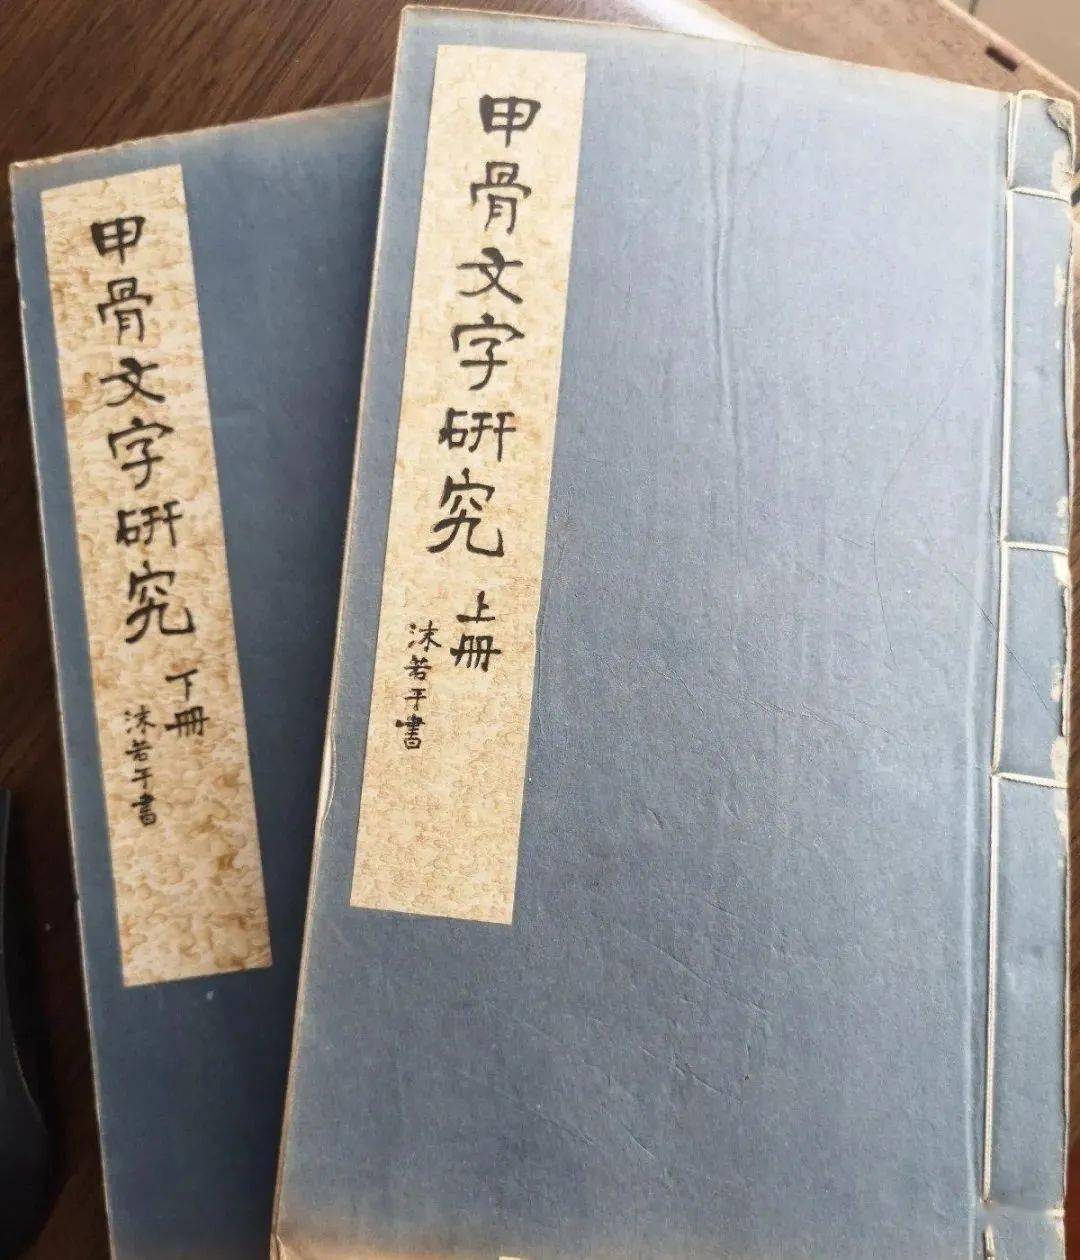 甲骨文字研究
上冊
沫若干書
甲骨文字研究
下冊
沫若干書